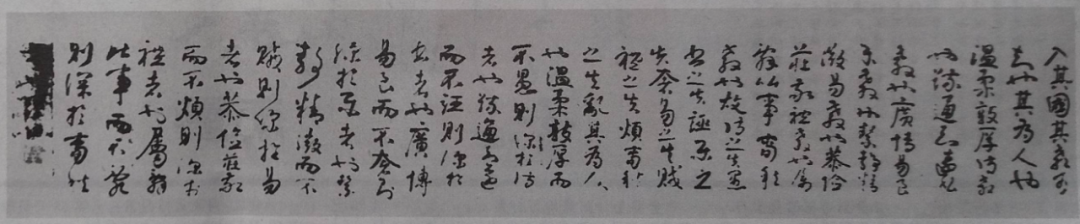 入其國其教可
知也其為人也
溫柔敦厚詩教
也疏通知遠書
教也廣博易良
樂教也絜靜精
微易教也恭儉
莊敬禮教也屬
辭比事春秋
教也故詩之失愚
書之失誣樂之
失奢易之失賊
禮之失煩春秋
之失亂其為人
也溫柔敦厚而
不愚則深於詩
者也疏通知遠
而不誣則深於
書者也廣博
易良而不奢則
深於樂者也絜
靜精微而不
賊則深於易
者也恭儉莊敬
而不煩則深於
禮者也屬辭
比事而不亂
則深於春秋